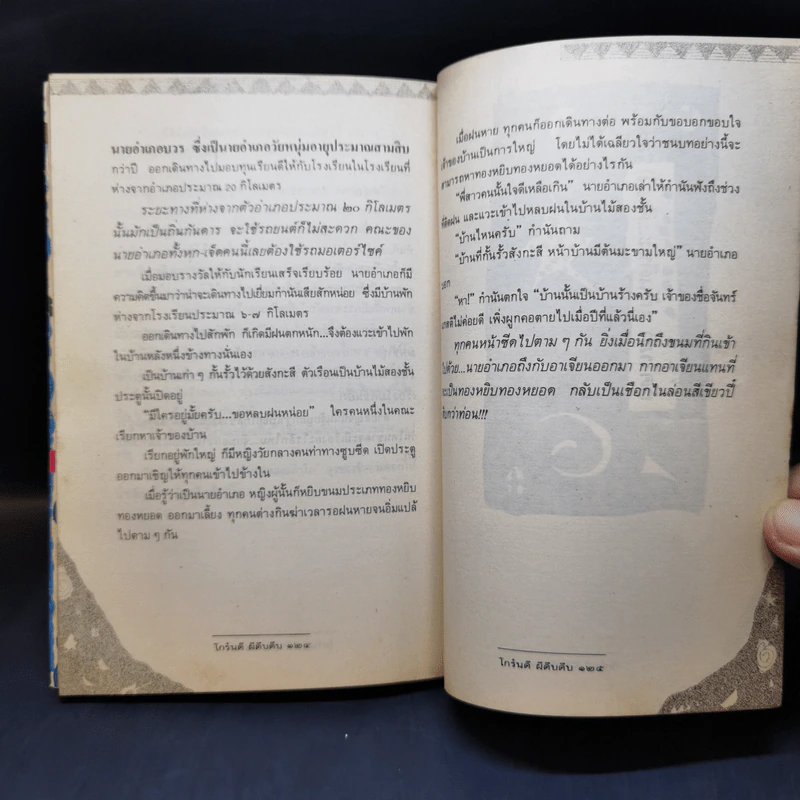 นายอำเภอบวร ซึ่งเป็นนายอำเภอวัยหนุ่มอายุประมาณสามสิบ
กว่าปี ออกเดินทางไปมอบทุนเรียนดีให้กับโรงเรียนในโรงเรียนที่
ห่างจากอำเภอประมาณ ๒๐ กิโลเมตร
ระยะทางที่ห่างจากตัวอำเภอประมาณ ๒๐ กิโลเมตร
นั้นมักเป็นถิ่นกันดาร จะใช้รถยนต์ก็ไม่สะดวก คณะของ
นายอำเภอทั้งหก-เจ็ดคนนี้เลยต้องใช้รถมอเตอร์ไซค์
เมื่อมอบรางวัลให้กับนักเรียนเสร็จเรียบร้อย นายอำเภอก็มี
ความคิดขึ้นมาว่าน่าจะเดินทางไปเยี่ยมกำนันเสียสักหน่อย ซึ่งมีบ้านพัก
ห่างจากโรงเรียนประมาณ ๖-๗ กิโลเมตร
ออกเดินทางไปสักพัก ก็เกิดมีฝนตกหนัก...จึงต้องแวะเข้าไปพัก
ในบ้านหลังหนึ่งข้างทางนั่นเอง
เป็นบ้านเก่า ๆ กั้นรั้วไว้ด้วยสังกะสี ตัวเรือนเป็นบ้านไม้สองชั้น
ประตูนั้นปิดอยู่
“มีใครอยู่มั้ยครับ...ขอหลบฝนหน่อย” ใครคนหนึ่งในคณะ
เรียกหาเจ้าของบ้าน
เรียกอยู่พักใหญ่ ก็มีหญิงวัยกลางคนท่าทางซูบซีด เปิดประตู
ออกมาเชิญให้ทุกคนเข้าไปข้างใน
เมื่อรู้ว่าเป็นนายอำเภอ หญิงผู้นั้นก็หยิบขนมประเภททองหยิบ
ทองหยอด ออกมาเลี้ยง ทุกคนต่างกินฆ่าเวลารอฝนหายจนอิ่มแปล้
ไปตาม ๆ กัน
โกร๋นดี ผีดิบดิบ ๑๒๔
เมื่อฝนหาย ทุกคนก็ออกเดินทางต่อ พร้อมกับขอบอกขอบใจ
เจ้าของบ้านเป็นการใหญ่ โดยไม่ได้เฉลียวใจว่าชนบทอย่างนี้จะ
สามารถหาทองหยิบทองหยอดได้อย่างไรกัน
“พี่สาวคนนั้นใจดีเหลือเกิน” นายอำเภอเล่าให้กำนันฟังถึงช่วง
ที่ติดฝน และแวะเข้าไปหลบฝนในบ้านไม้สองชั้น
“บ้านไหนครับ” กำนันถาม
“บ้านที่กั้นรั้วสังกะสี หน้าบ้านมีต้นมะขามใหญ่” นายอำเภอ
บอก
“หา!” กำนันตกใจ “บ้านนั้นเป็นบ้านร้างครับ เจ้าของชื่อจันทร์
สติไม่ค่อยดี เพิ่งผูกคอตายไปเมื่อปีที่แล้วนี่เอง”
ทุกคนหน้าซีดไปตาม ๆ กัน ยิ่งเมื่อนึกถึงขนมที่กินเข้า
ไปด้วย...นายอำเภอถึงกับอาเจียนออกมา กากอาเจียนแทนที่
จะเป็นทองหยิบทองหยอด กลับเป็นเชือกไนล่อนสีเขียวปี๋
กว่าท่อน!!!
โกร๋นดี ผีดิบดิบ ๑๒๕